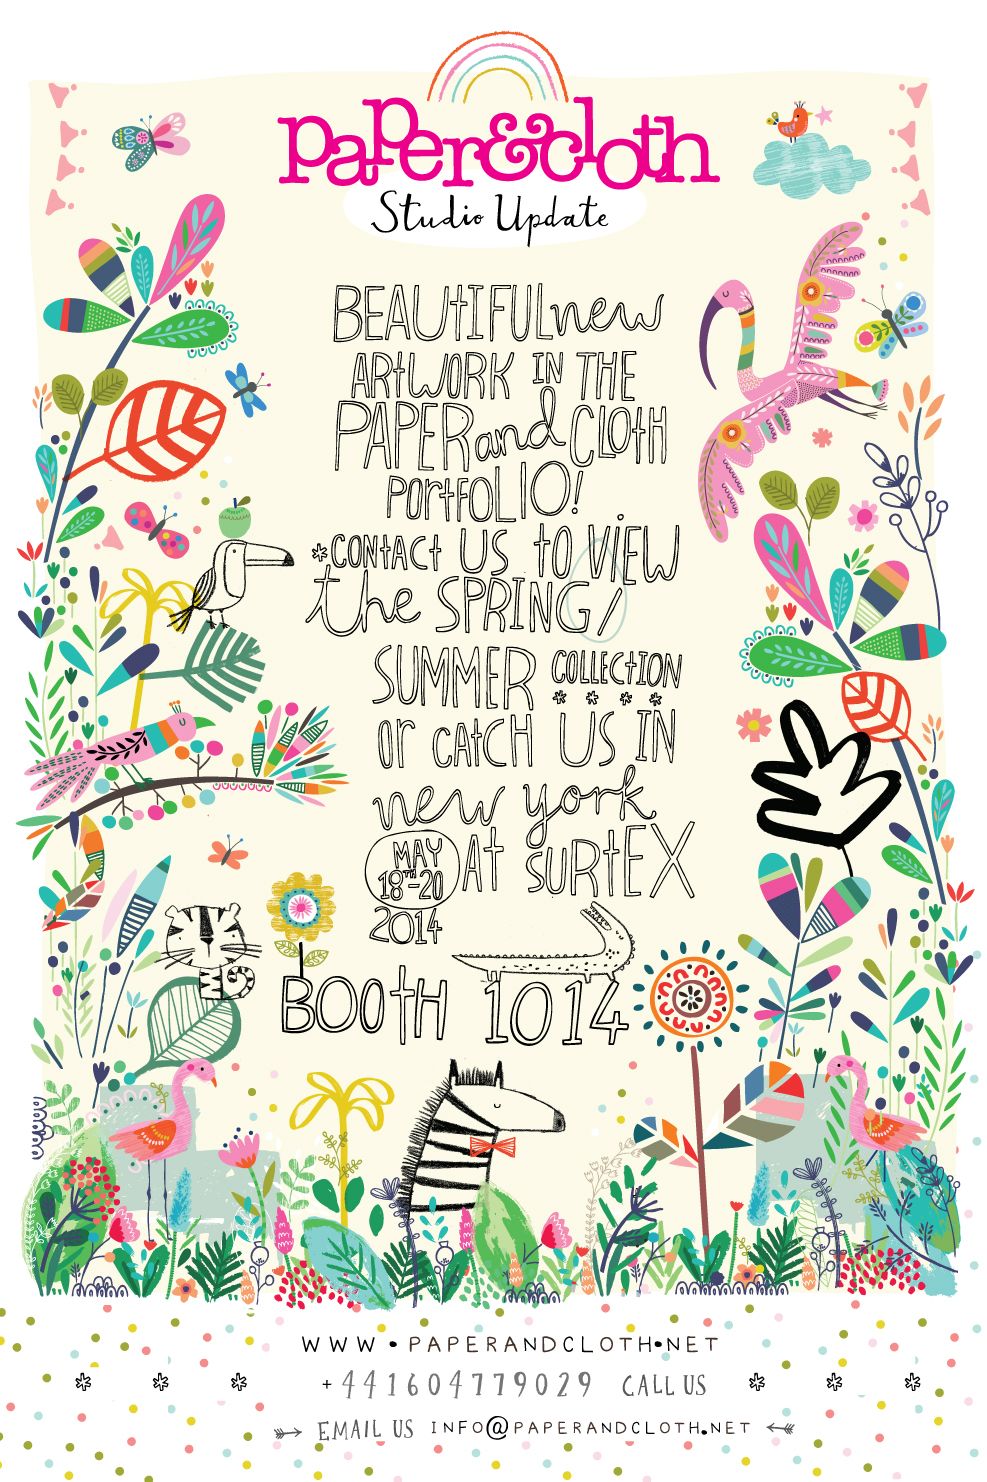 paper&cloth
Studio Update
BEAUtIFUL new
ARtWORK IN tHE
PAPER and CLOtH
PORtFOLIO!
*CONtACt US tO ViEW
the SPRING/
SUMMER COLLECTION
* * * *
OR CAtCH US IN
new york
MAY
18TH-20
2014
At SURtEX
BOOtH 1014
WWW.PAPERANDCLOTH.NET
* * * +441604779029 CALL US * * *
EMAIL US INFO@PAPERANDCLOTH.NET